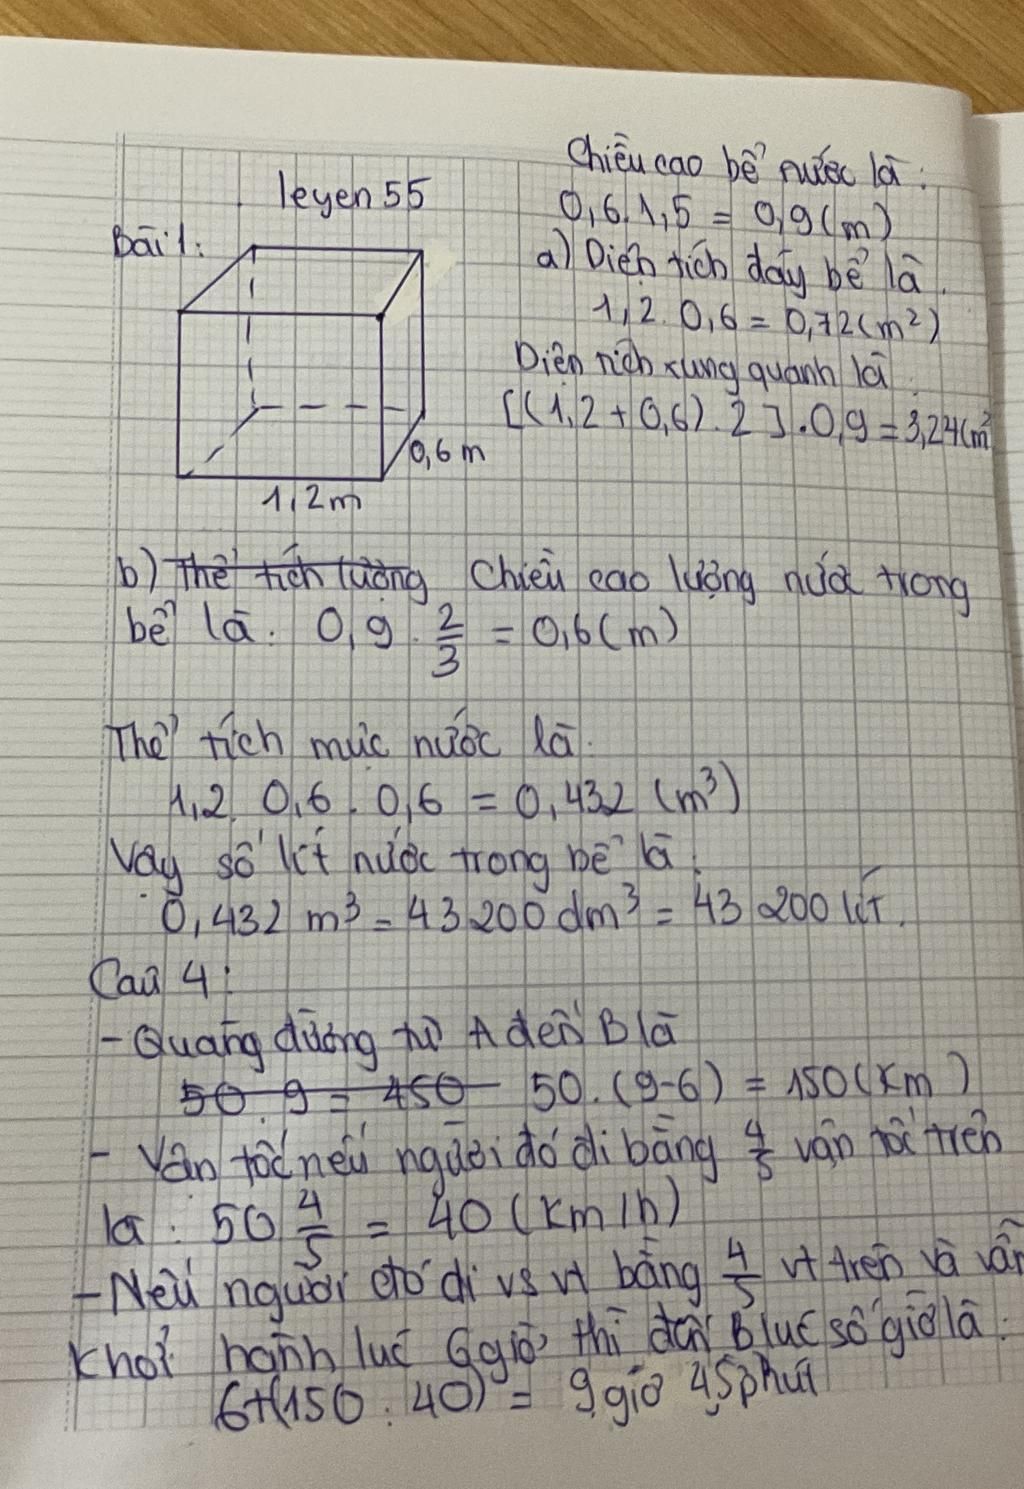 leyen 55
Bài 1:
1,2m
0,6 m
Chiều cao bể nước là:
0,6.1,5 = 0,9(m)
a) Diện tích đáy bể là.
1,2.0,6 = 0,72(m²)
Diện tích xung quanh là
[(1,2+0,6).2].0,9 = 3,24(m²
b) Thể tích lượng Chiều cao lượng nước trong
bể là. 0,9.2/3 = 0,6(m)
Thể tích mực nước là.
1,2.0,6.0,6 = 0,432 (m³)
Vậy số lít nước trong bể là:
0,432 m³ = 43 200 dm³ = 43 200 lít.
Câu 4:
- Quãng đường từ A đến B là
50.9 = 450 50.(9-6) = 150(km)
- Vận tốc nếu người đó đi bằng 4/5 vận tốc trên
là: 50 4/5 = 40 (km/h)
- Nếu người đó đi vs vt bằng 4/5 vt trên và vẫn
khởi hành lúc 6 giờ thì đến B lúc số giờ là:
6+(150:40) = 9 giờ 45 phút